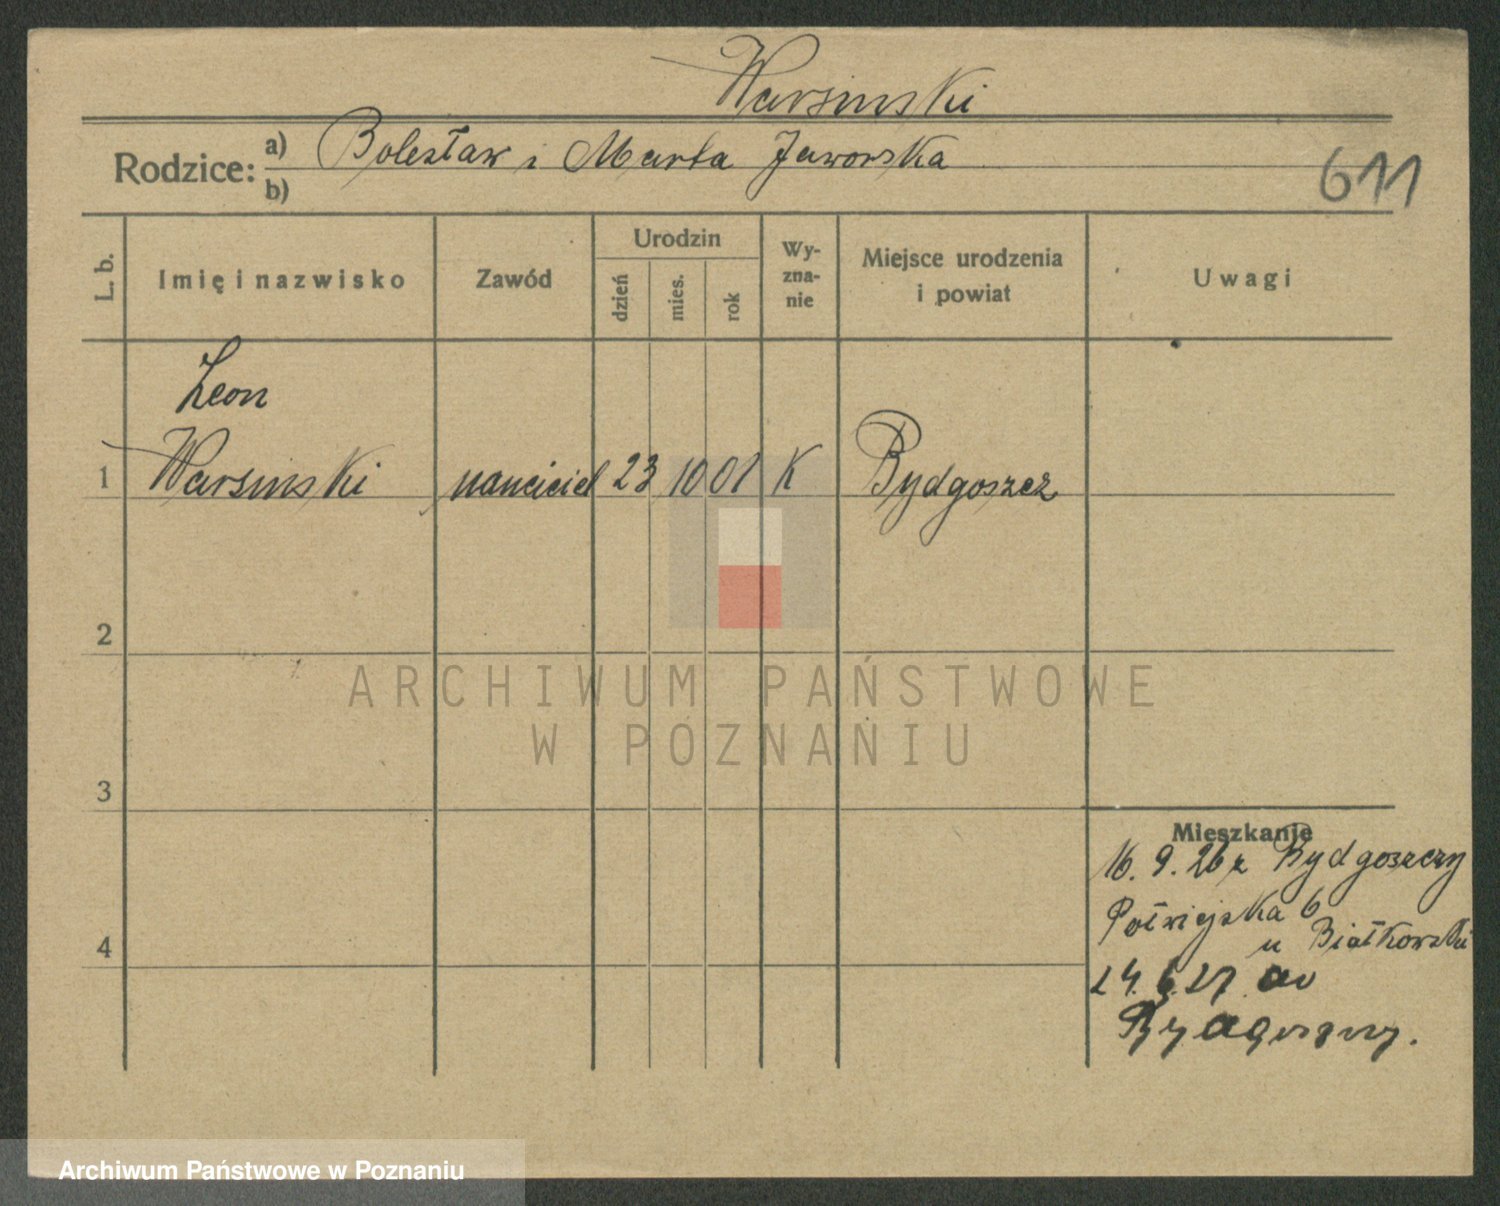 Warsinski
Rodzice: a) Bolesław i Marta Jaworska
b)
611
L. b.
Imię i nazwisko
Zawód
Urodzin
dzień
mies.
rok
Wy-
zna-
nie
Miejsce urodzenia
i powiat
Uwagi
Leon
1 Warsinski nauciciel 23 10 01 K Bydgoszcz
2
3
4
Mieszkanie
16. 9. 26 z Bydgoszczy
Półwiejska 6
u Białkowski
24. 6. 27 do
Bydgoszczy.
ARCHIWUM PAŃSTWOWE
W POZNANIU
Archiwum Państwowe w Poznaniu